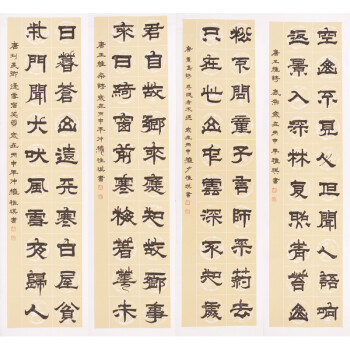 空山不見人但聞人語响
返景入深林复照青苔上
唐王維鹿柴歲在丙申年
松下問童子言師采葯去
只在此山中雲深不知處
唐賈島詩尋隱者不遇歲在丙申
君自故鄉來應知故鄉事
來日綺窗前寒梅着花未
唐王維雜詩歲在丙申年
日暮蒼山遠天寒白屋貧
柴門聞犬吠風雪夜歸人
唐刘長卿逢雪宿芙蓉歲在丙申年